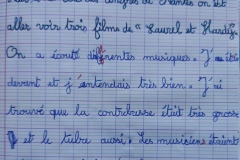 au congrès de Nantes on est
aller voir trois films de "Laurel et Hardy".
On a écouté différentes musiques. J'étais
devant et j'entendais très bien. J'ai
trouvé que la contrebasse était très grosse
et le tuba aussi. Les musiciens étaient